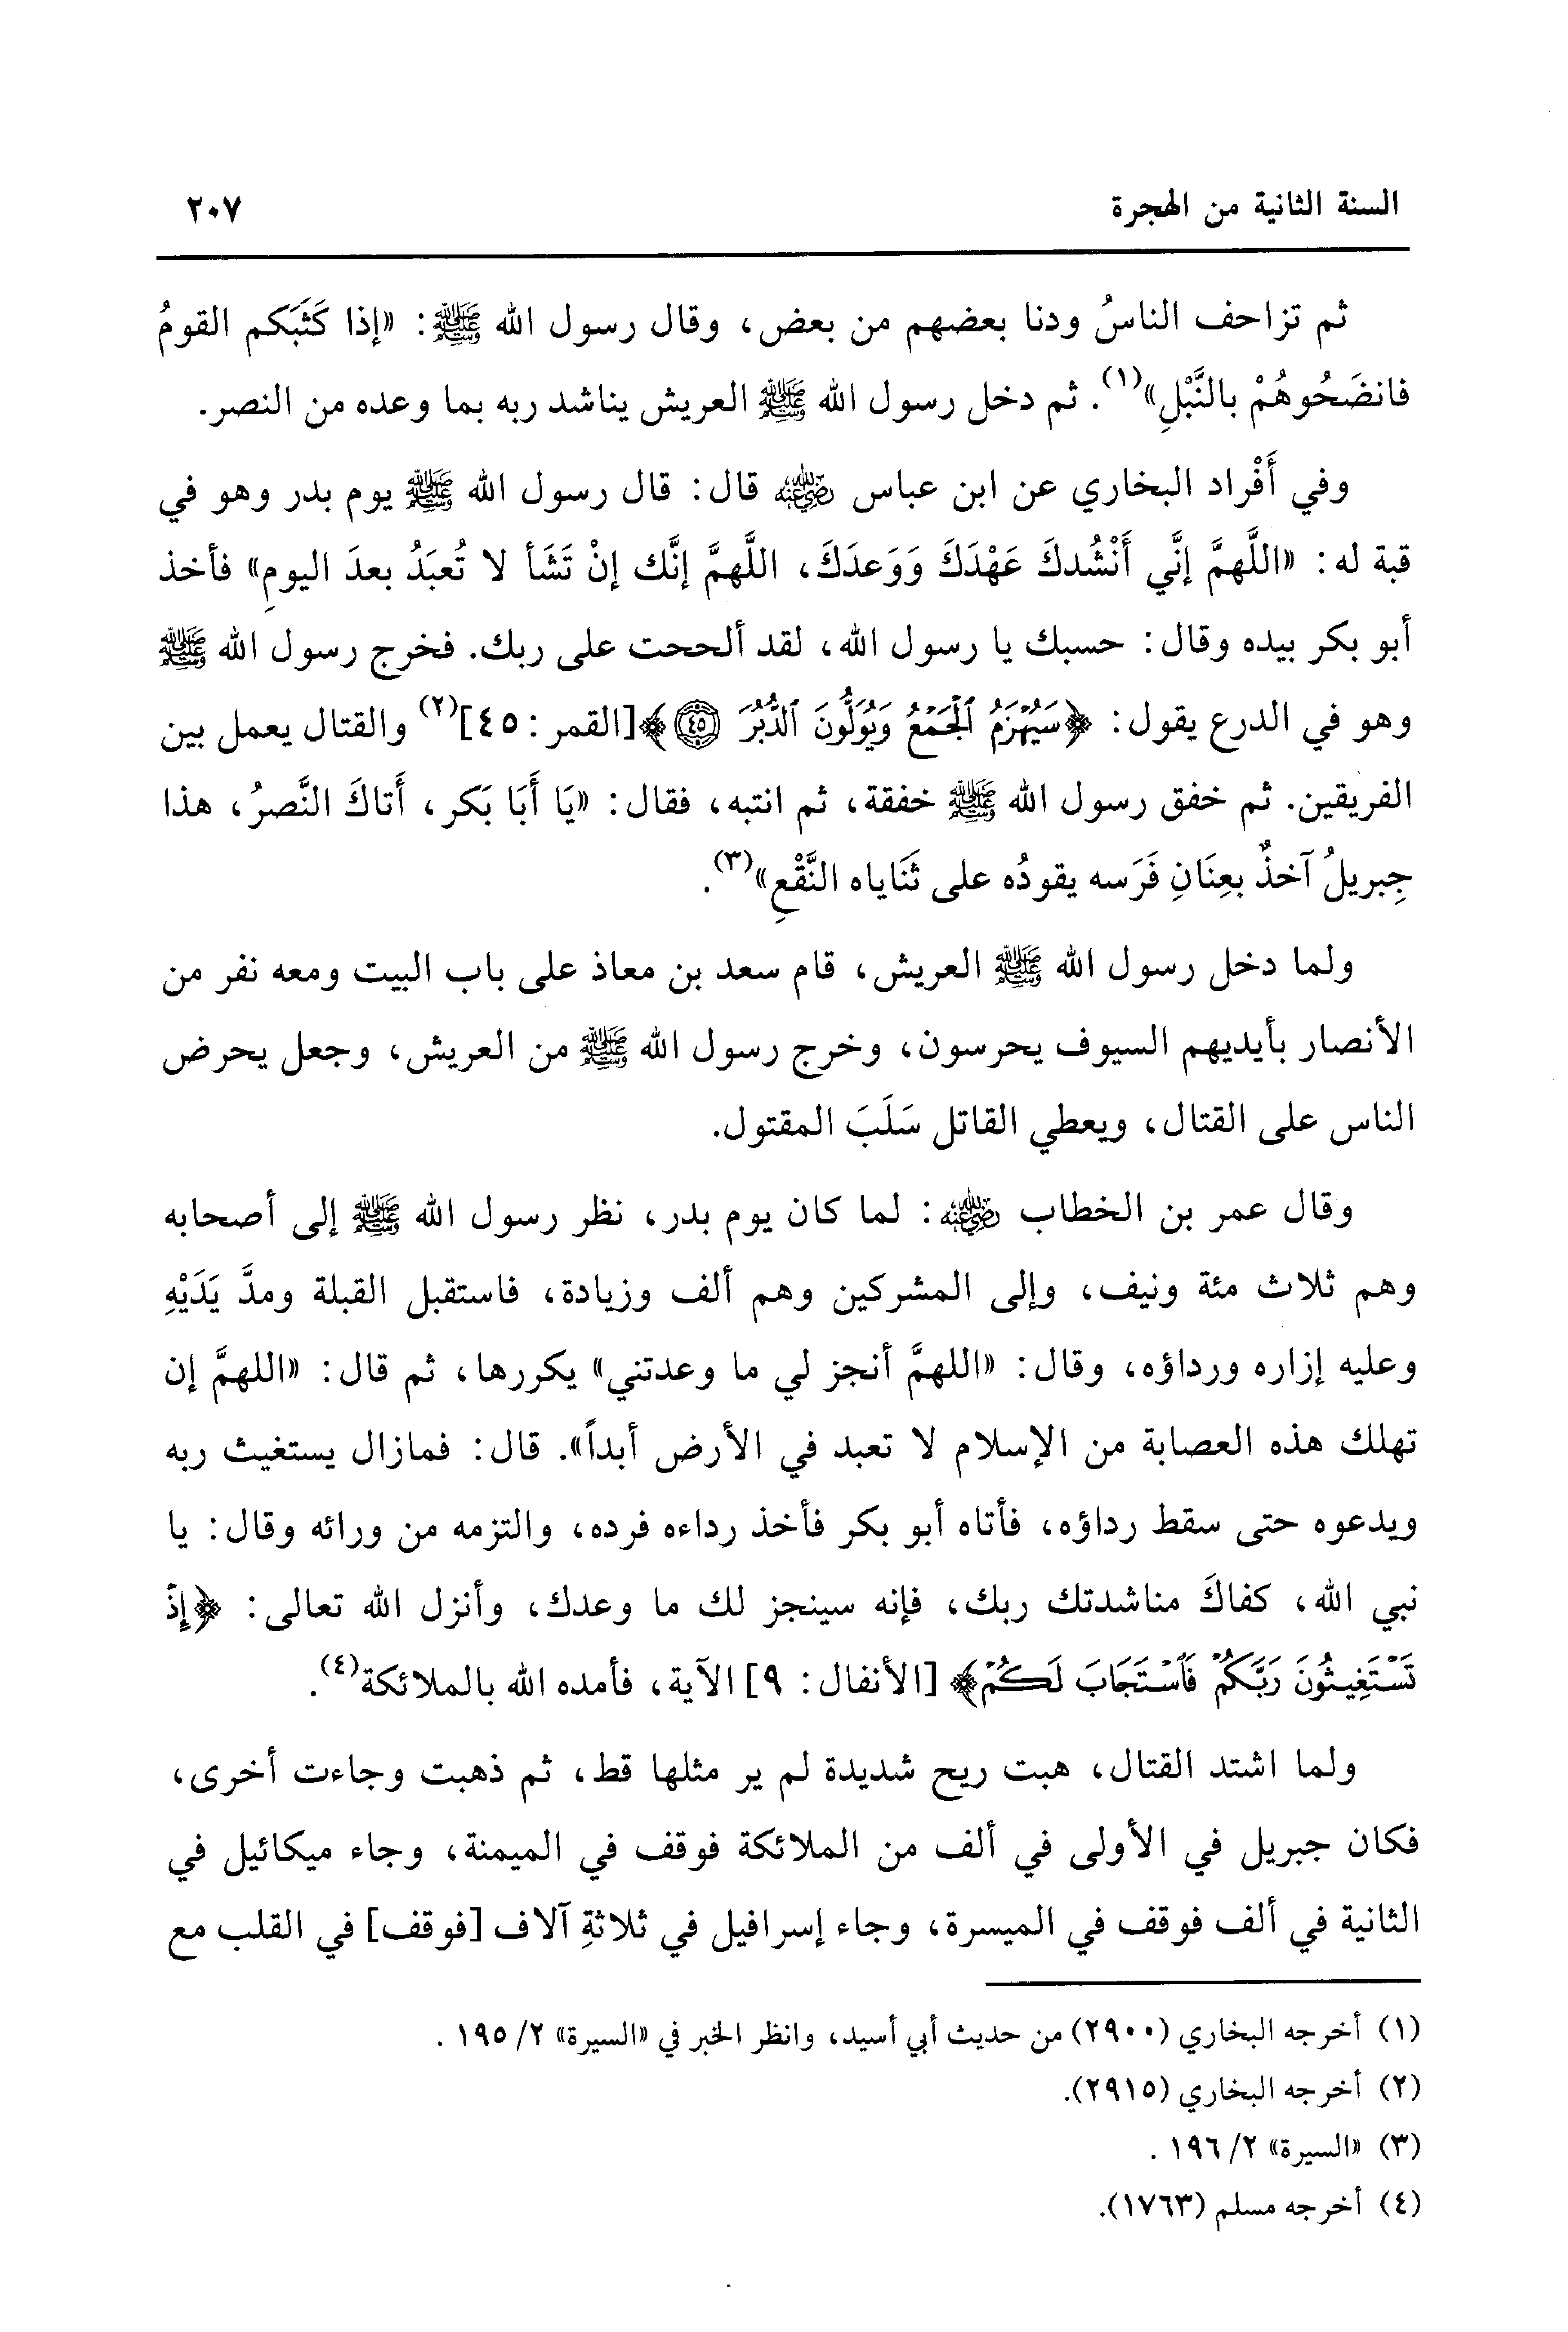 السنة الثانية من الهجرة ٢٠٧
ثم تزاحف الناسُ ودنا بعضهم من بعض، وقال رسول الله ﷺ: «إذا كَثَبَكم القومُ
فانضَحُوهُمْ بالنَّبْلِ»(١). ثم دخل رسول الله ﷺ العريش يناشد ربه بما وعده من النصر.
وفي أَفْراد البخاري عن ابن عباس رضي الله عنه قال: قال رسول الله ﷺ يوم بدر وهو في
قبة له: «اللَّهمَّ إنَّي أَنْشُدكَ عَهْدَكَ وَوَعدَكَ، اللَّهمَّ إنَّك إنْ تَشَأ لا تُعبَدُ بعدَ اليومِ» فأخذ
أبو بكر بيده وقال: حسبك يا رسول الله، لقد ألححت على ربك. فخرج رسول الله ﷺ
وهو في الدرع يقول: ﴿سَيُهْزَمُ ٱلْجَمْعُ وَيُوَلُّونَ ٱلدُّبُرَ ٤٥﴾[القمر: ٤٥](٢) والقتال يعمل بين
الفريقين. ثم خفق رسول الله ﷺ خفقة، ثم انتبه، فقال: «يَا أَبَا بَكر، أَتاكَ النَّصرُ، هذا
جِبريلُ آخذٌ بعِنَانِ فَرَسه يقودُه على ثَنَاياه النَّقْعِ»(٣).
ولما دخل رسول الله ﷺ العريش، قام سعد بن معاذ على باب البيت ومعه نفر من
الأنصار بأيديهم السيوف يحرسون، وخرج رسول الله ﷺ من العريش، وجعل يحرض
الناس على القتال، ويعطي القاتل سَلَبَ المقتول.
وقال عمر بن الخطاب رضي الله عنه: لما كان يوم بدر، نظر رسول الله ﷺ إلى أصحابه
وهم ثلاث مئة ونيف، وإلى المشركين وهم ألف وزيادة، فاستقبل القبلة ومدَّ يَدَيْهِ
وعليه إزاره ورداؤه، وقال: «اللهمَّ أنجز لي ما وعدتني» يكررها، ثم قال: «اللهمَّ إن
تهلك هذه العصابة من الإسلام لا تعبد في الأرض أبداً». قال: فمازال يستغيث ربه
ويدعوه حتى سقط رداؤه، فأتاه أبو بكر فأخذ رداءه فرده، والتزمه من ورائه وقال: يا
نبي الله، كفاكَ مناشدتك ربك، فإنه سينجز لك ما وعدك، وأنزل الله تعالى: ﴿إِذْ
تَسْتَغِيثُونَ رَبَّكُمْ فَٱسْتَجَابَ لَكُمْ﴾ [الأنفال: ٩] الآية، فأمده الله بالملائكة(٤).
ولما اشتد القتال، هبت ريح شديدة لم ير مثلها قط، ثم ذهبت وجاءت أخرى،
فكان جبريل في الأولى في ألف من الملائكة فوقف في الميمنة، وجاء ميكائيل في
الثانية في ألف فوقف في الميسرة، وجاء إسرافيل في ثلاثةِ آلاف [فوقف] في القلب مع
(١) أخرجه البخاري (٢٩٠٠) من حديث أبي أسيد، وانظر الخبر في «السيرة» ٢/ ١٩٥.
(٢) أخرجه البخاري (٢٩١٥).
(٣) «السيرة» ٢/ ١٩٦.
(٤) أخرجه مسلم (١٧٦٣).